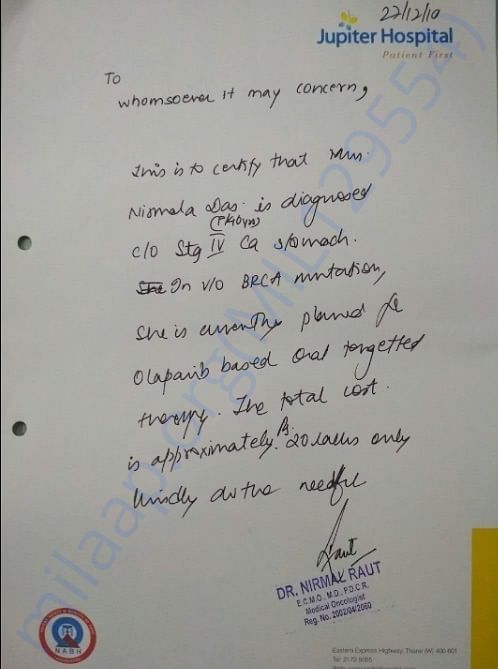 22/12/10
Jupiter Hospital
Patient First
To
whomsoever it may concern,
This is to certify that Mrs.
Nirmala Das. is diagnosed
(F/40yrs)
c/o Stg IV Ca stomach.
In v/o BRCA mutation,
She is currently planned for
Olaparib based oral targetted
therapy. The total cost.
is approximately Rs. 20 lakhs only
kindly do the needful
Raut
DR. NIRMAL RAUT
E.C.M.O., M.D., P.D.C.R.
Medical Oncologist
Reg. No. 2002/04/2060
NABH
Eastern Express Highway, Thane (W) 400 601
milaap.org(MILT295554)